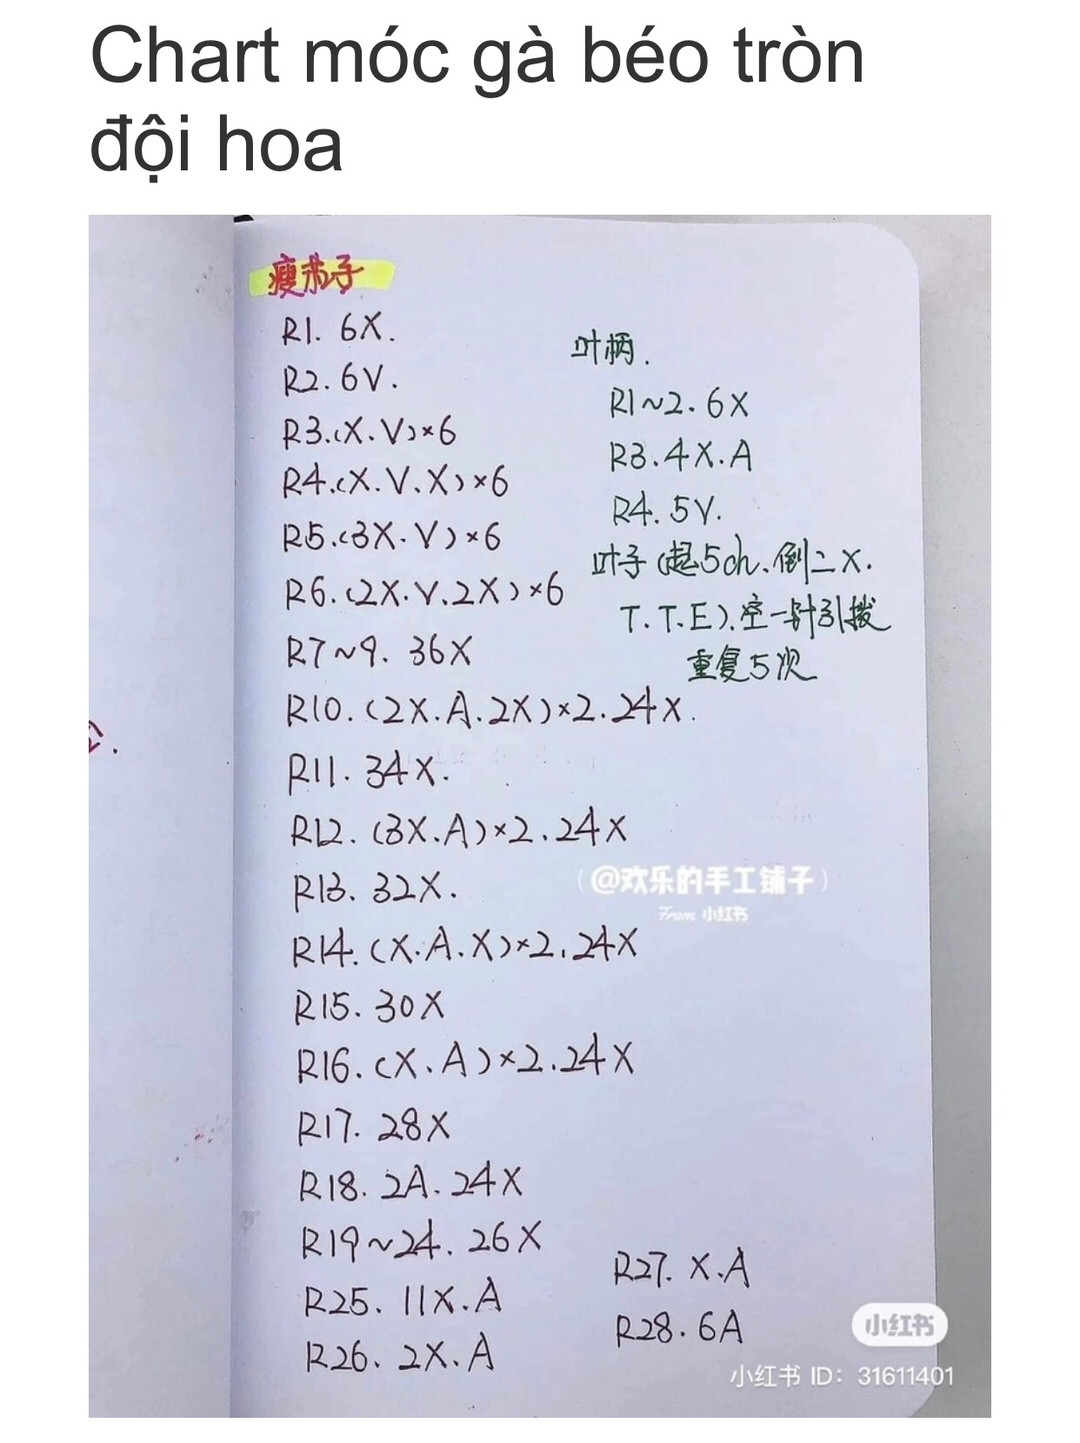 Chart móc gà béo tròn
đội hoa
瘦茄子
R1. 6X.
R2. 6V.
R3.(X.V)×6
R4.(X.V.X)×6
R5.(3X.V)×6
R6.(2X.V.2X)×6
R7~9. 36X
R10.(2X.A.2X)×2.24X.
R11. 34X.
R12. (3X.A)×2.24X
R13. 32X.
R14.(X.A.X)×2.24X
R15. 30X
R16.(X.A)×2.24X
R17. 28X
R18. 2A.24X
R19~24. 26X
R25. 11X.A
R26. 2X.A
叶柄.
R1~2.6X
R3.4X.A
R4.5V.
叶子(起5ch.倒二X.
T.T.E).空一针引拨
重复5次
R27. X.A
R28.6A
(@欢乐的手工铺子)
From 小红书
小红书
小红书 ID: 31611401